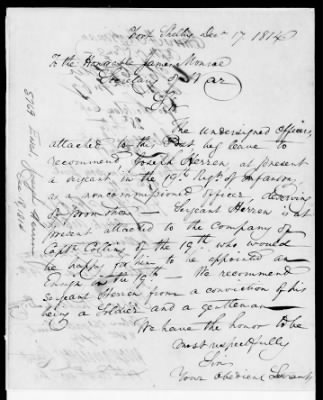 Fort Shelby Decr 17, 1814
To the Honorable James Monroe
Secretary of War
Sir
The undersigned Officers,
attached to this Post, beg leave to
recommend Joseph Herren at present
a sergeant in the 19th Regt. of Infantry,
as a noncommissioned officer, deserving
of promotion — Sergeant Herren is at
present attached to the company of
Captn Collins of the 19th who would
be happy for him to be appointed an
Ensign in the 19th — We recommend
Sergeant Herren from a conviction of his
being a Soldier and a gentleman
We have the honor to be
most respectfully
Sir
Your obedient Servants